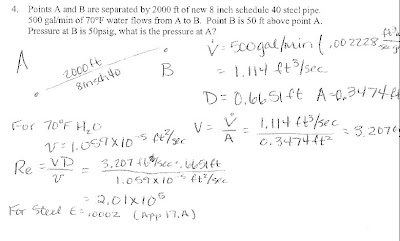 4. Points A and B are separated by 2000 ft of new 8 inch schedule 40 steel pipe.
500 gal/min of 70°F water flows from A to B. Point B is 50 ft above point A.
Pressure at B is 50psig, what is the pressure at A?
V̇ = 500gal/min (.002228 ft³
= 1.114 ft³/sec
A 2000 ft B
8in sch 40
D = 0.6651ft A=0.3474 ft
For 70°F H₂O
ν = 1.059x10⁻⁵ ft²/sec
V = V̇/A = 1.114 ft³/sec / 0.3474ft² = 3.207
Re = VD/ν = 3.207 ft/sec · .6651ft / 1.059x10⁻⁵ ft²/sec
= 2.01x10⁵
For Steel ε=.0002 (App 17.A)